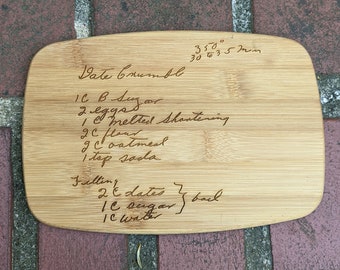 350°
30 to 35 min
Date Crumble
1 C B Sugar
2 eggs
1 C Melted Shortening
2 C flour
2 C oatmeal
1 tsp soda
Filling
2 C dates
1 C sugar } boil
1 C water